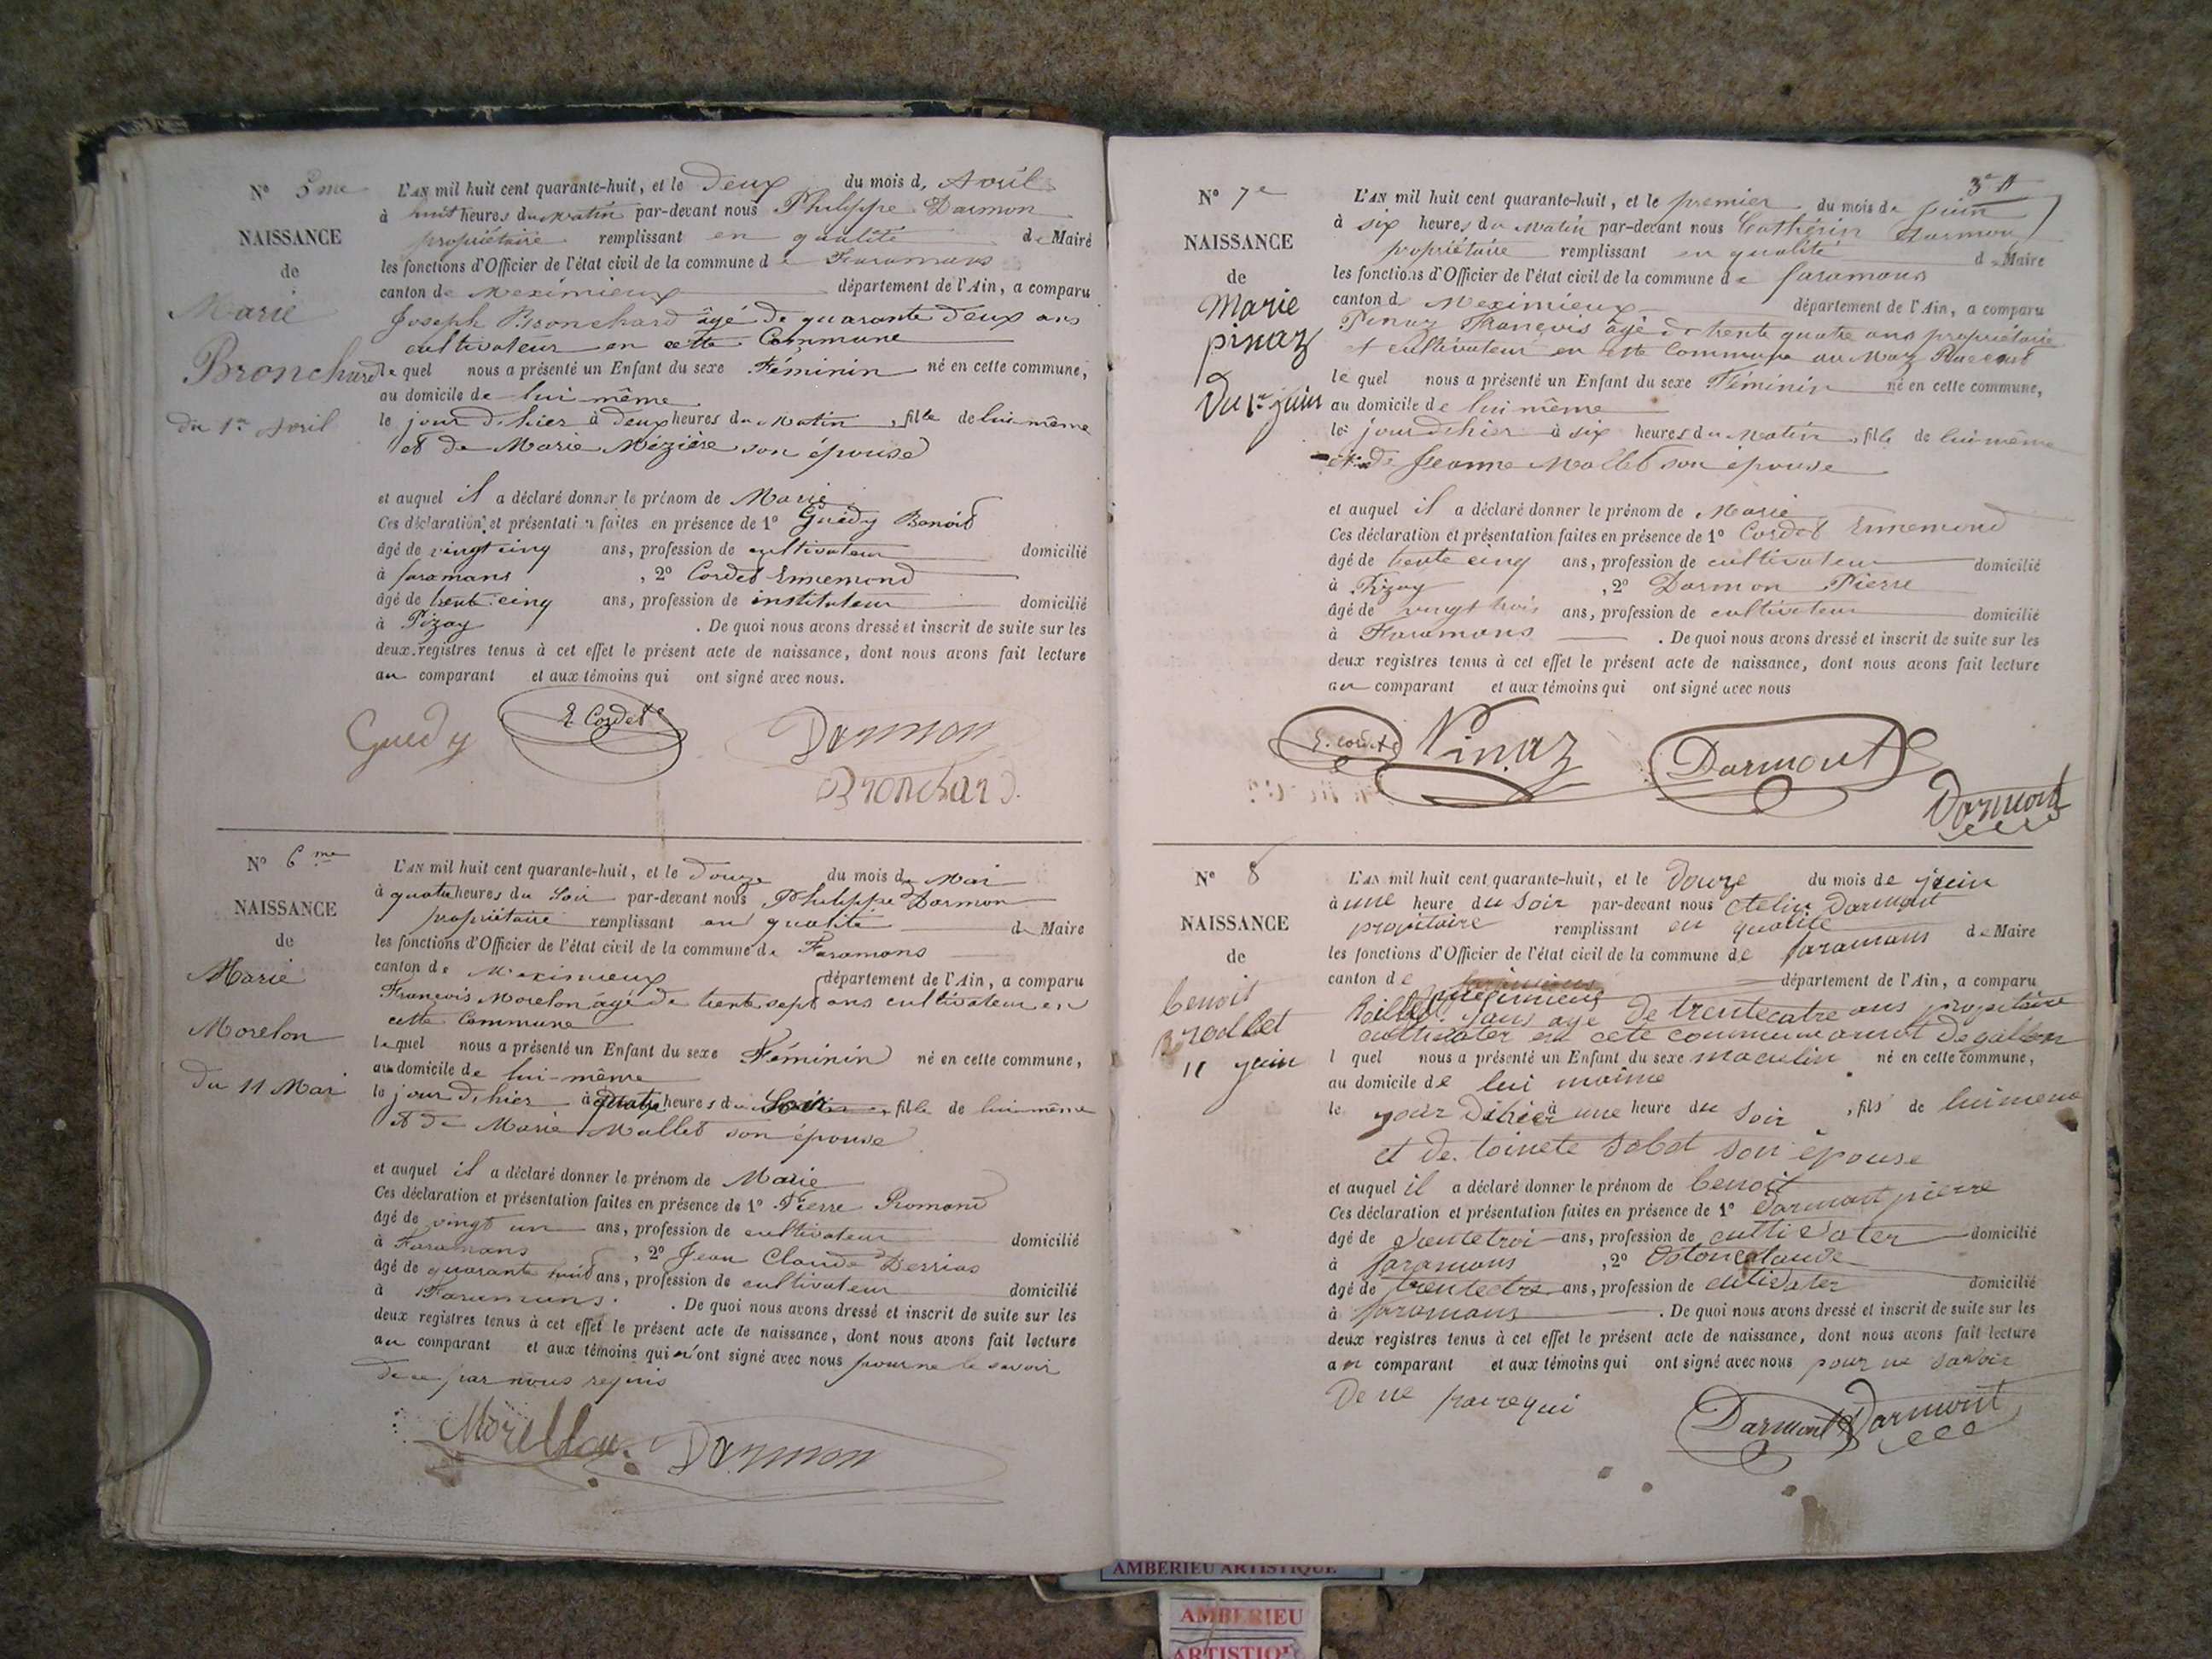 N° 5me
NAISSANCE
de
Marie
Bronchard
du 1er Avril
L'AN mil huit cent quarante-huit, et le Deux du mois d, Avril
à huit heures du Matin par-devant nous Philippe Darmon
propriétaire remplissant en qualité de Maire
les fonctions d'Officier de l'état civil de la commune de Faramans
canton de Meximieux département de l'Ain, a comparu
Joseph Bronchard âgé de quarante deux ans
cultivateur en cette Commune
le quel nous a présenté un Enfant du sexe Féminin né en cette commune,
au domicile de lui-même
le jour d'hier à deux heures du Matin, fille de lui-même
et de Marie Mézière son épouse
et auquel il a déclaré donner le prénom de Marie
Ces déclaration et présentation faites en présence de 1° Guédy Benoit
âgé de vingt cinq ans, profession de cultivateur domicilié
à faramans , 2° Cordet Ennemond
âgé de trente cinq ans, profession de instituteur domicilié
à Pizay . De quoi nous avons dressé et inscrit de suite sur les
deux registres tenus à cet effet le présent acte de naissance, dont nous avons fait lecture
au comparant et aux témoins qui ont signé avec nous.
Guedy E Cordet Darmon
Bronchard
N° 6me
NAISSANCE
de
Marie
Morelon
Du 11 Mai
L'AN mil huit cent quarante-huit, et le Douze du mois de Mai
à quatre heures du Soir par-devant nous Philippe Darmon
propriétaire remplissant en qualité de Maire
les fonctions d'Officier de l'état civil de la commune de Faramans
canton de Meximieux département de l'Ain, a comparu
François Morelon âgé de trente sept ans cultivateur en
cette Commune
lequel nous a présenté un Enfant du sexe Féminin né en cette commune,
au domicile de lui-même
le jour d'hier à quatre heures du Soir, fille de lui-même
et de Marie Mallet son épouse
et auquel il a déclaré donner le prénom de Marie
Ces déclaration et présentation faites en présence de 1° Pierre Romand
âgé de vingt un ans, profession de cultivateur domicilié
à Faramans , 2° Jean Claude Derrias
âgé de quarante huit ans, profession de cultivateur domicilié
à Faramans. . De quoi nous avons dressé et inscrit de suite sur les
deux registres tenus à cet effet le présent acte de naissance, dont nous avons fait lecture
au comparant et aux témoins qui n'ont signé avec nous pour ne le savoir
de ce par nous requis
Morellon. Darmon
3e
N° 7e
NAISSANCE
de
Marie
pinaz
Du 1er juin
L'AN mil huit cent quarante-huit, et le premier du mois de Juin
à six heures du Matin par-devant nous Darmon
propriétaire remplissant en qualité de Maire
les fonctions d'Officier de l'état civil de la commune de faramans
canton de Meximieux département de l'Ain, a comparu
Pinaz François âgé de trente quatre ans propriétaire
et cultivateur en cette Commune au Maz
le quel nous a présenté un Enfant du sexe Féminin né en cette commune,
au domicile de lui même
le jour d'hier à six heures du Matin, fille de lui-même
et de Jeanne Mallet son épouse
et auquel il a déclaré donner le prénom de Marie
Ces déclaration et présentation faites en présence de 1° Cordet Ennemond
âgé de trente cinq ans, profession de cultivateur domicilié
à Pizay , 2° Darmon Pierre
âgé de vingt trois ans, profession de cultivateur domicilié
à Faramans . De quoi nous avons dressé et inscrit de suite sur les
deux registres tenus à cet effet le présent acte de naissance, dont nous avons fait lecture
au comparant et aux témoins qui ont signé avec nous
E. cordet Pinaz Darmont
Darmont
N° 8
NAISSANCE
de
benoit
Broallet
11 juin
L'AN mil huit cent quarante-huit, et le douze du mois de juin
à une heure du soir par-devant nous Darmont
propitaire remplissant en qualite de Maire
les fonctions d'Officier de l'état civil de la commune de faramans
canton de département de l'Ain, a comparu
age de trentecatre ans propitaire
cultivater en cete commune
l quel nous a présenté un Enfant du sexe maculin né en cette commune,
au domicile de lui maime
le jour dihier à une heure du soir , fils de lui meme
et de toinete sobet son épouse
et auquel il a déclaré donner le prénom de benoit
Ces déclaration et présentation faites en présence de 1° Darmont pierre
âgé de ans, profession de cultivater domicilié
à faramans , 2°
âgé de ans, profession de domicilié
à faramans . De quoi nous avons dressé et inscrit de suite sur les
deux registres tenus à cet effet le présent acte de naissance, dont nous avons fait lecture
au comparant et aux témoins qui ont signé avec nous pour ne savoir
De ne
Darmont Darmont
AMBERIEU ARTISTIQUE
AMBERIEU
ARTISTIQUE